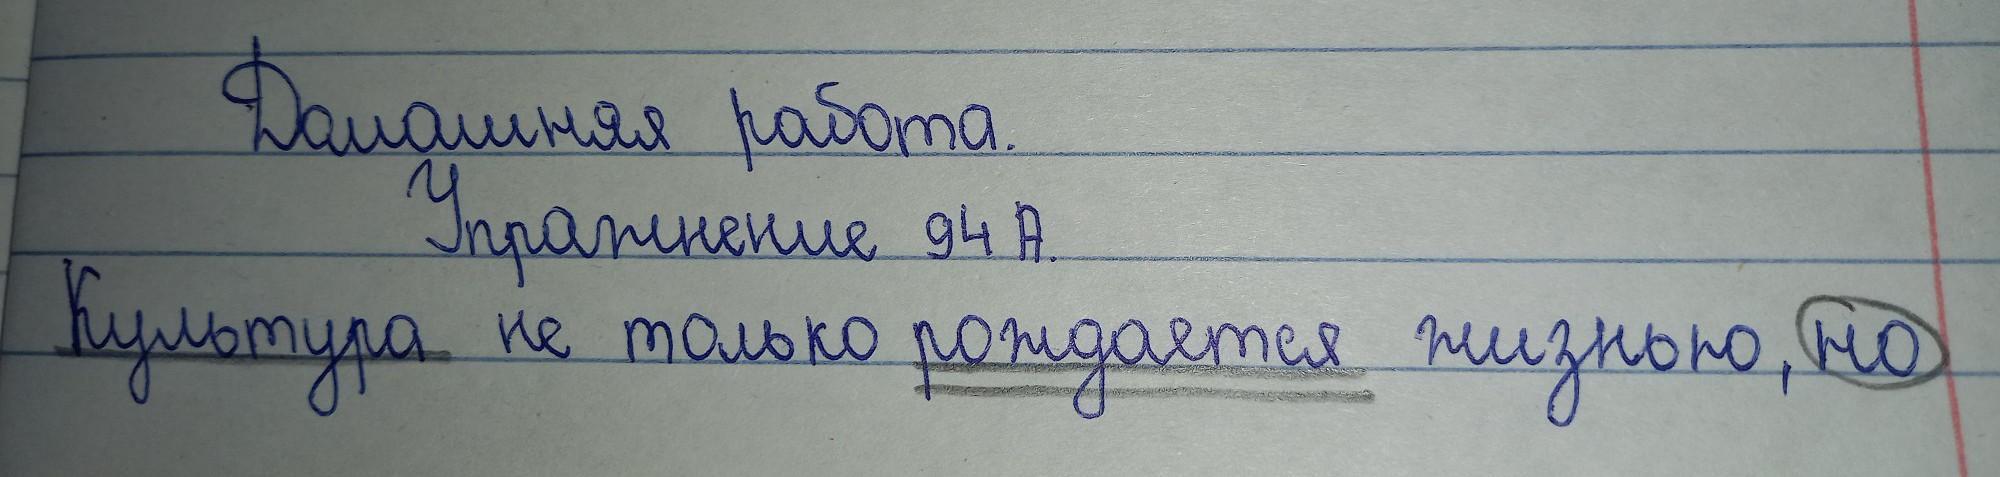 Домашняя работа.
Упражнение 94 А.
Культура не только рождается жизнью, но